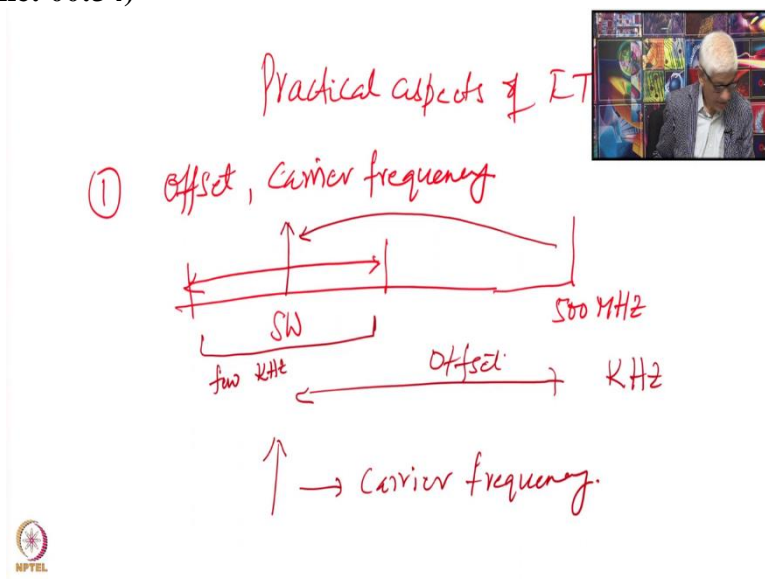 Practical aspects of
① Offset, Carrier frequency
500 MHZ
SW
few KHz
Offset
KHZ
→ Carrier frequency.
NPTEL